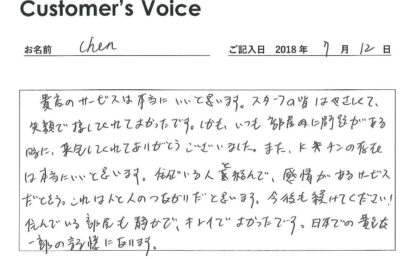 Customer's Voice
お名前 Chen ご記入日 2018 年 7 月 12 日
貴店のサービスは本当にいいと思います。スタッフの皆はやさしくて、
笑顔で接してくれてよかったです。しかも、いつも部屋内に問題がある
時に、来てくれてありがとうございました。また、ドミナンの存在
は本当にいいと思います。住んでいる人と絡んで、感情があるサービス
だと思う。これは人と人のつながりだと思います。今後も続けてください!
住んでいる部屋も静かで、キレイでよかったです。日本での貴重な
一部の記憶になります。